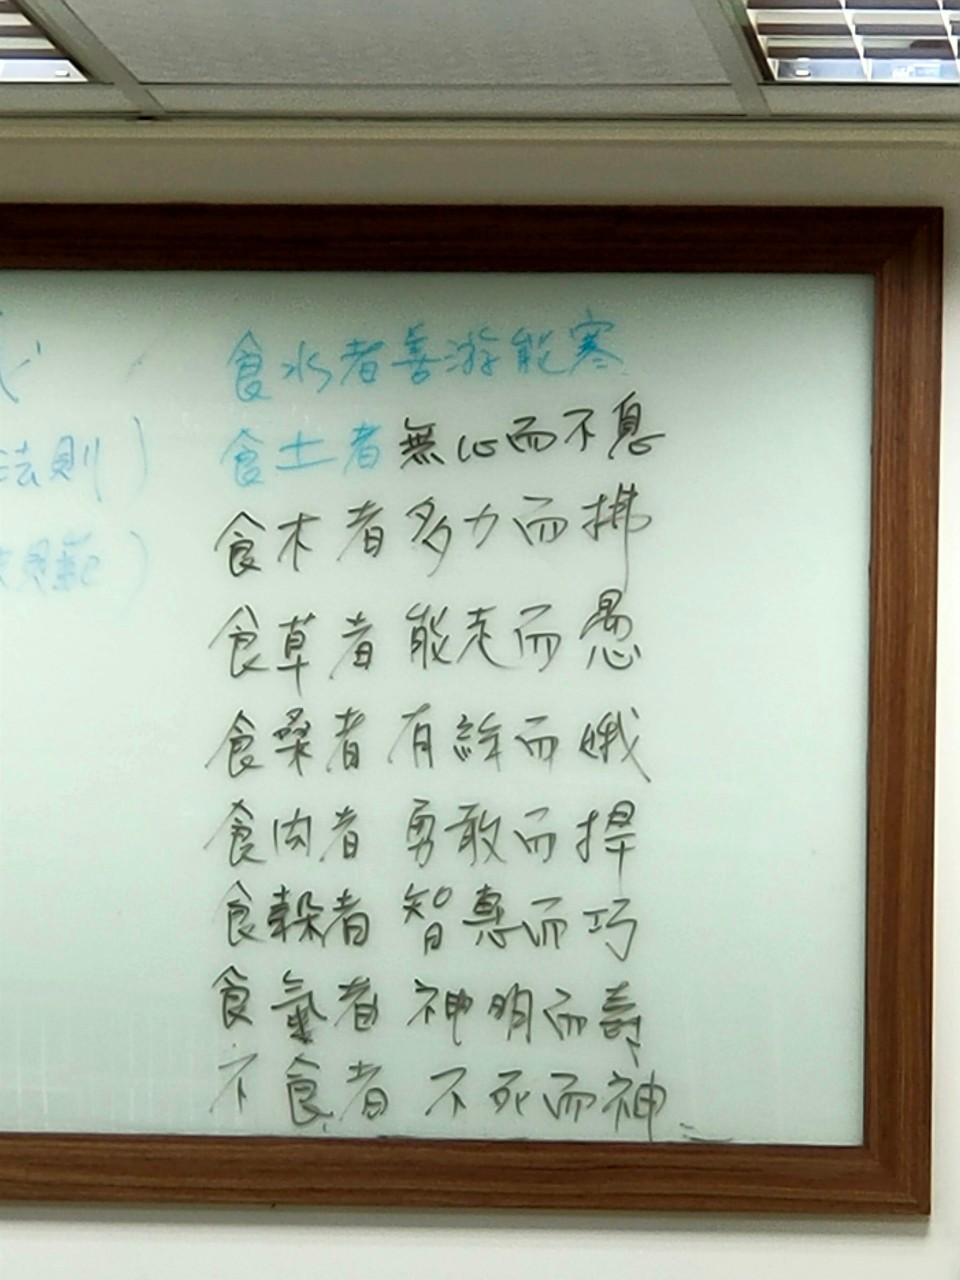 法則)
食水者善游能寒
食土者無心而不息
食木者多力而拂
食草者能走而愚
食桑者有絲而蛾
食肉者勇敢而捍
食穀者智惠而巧
食氣者神明而壽
不食者不死而神